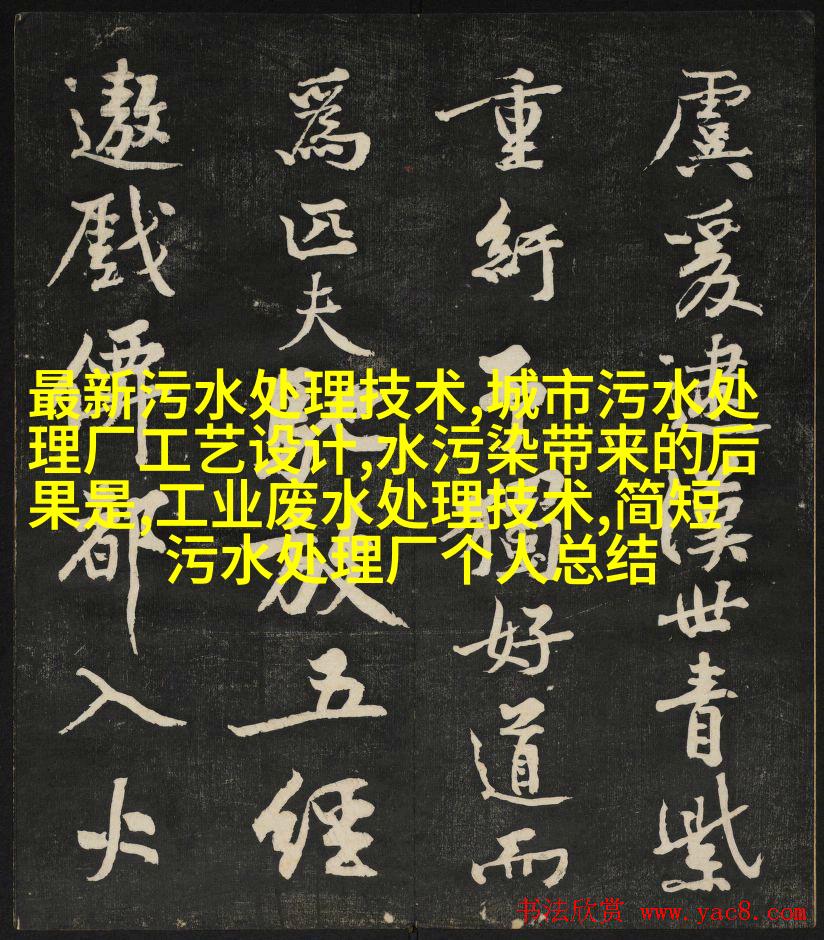 虞爰逮漢世青紫
重紆獨好道而
爲匹夫放五經
遨戲都入火
最新污水处理技术,城市污水处
理厂工艺设计,水污染带来的后
果是,工业废水处理技术,简短
污水处理厂个人总结
书法欣赏 www.yac8.com